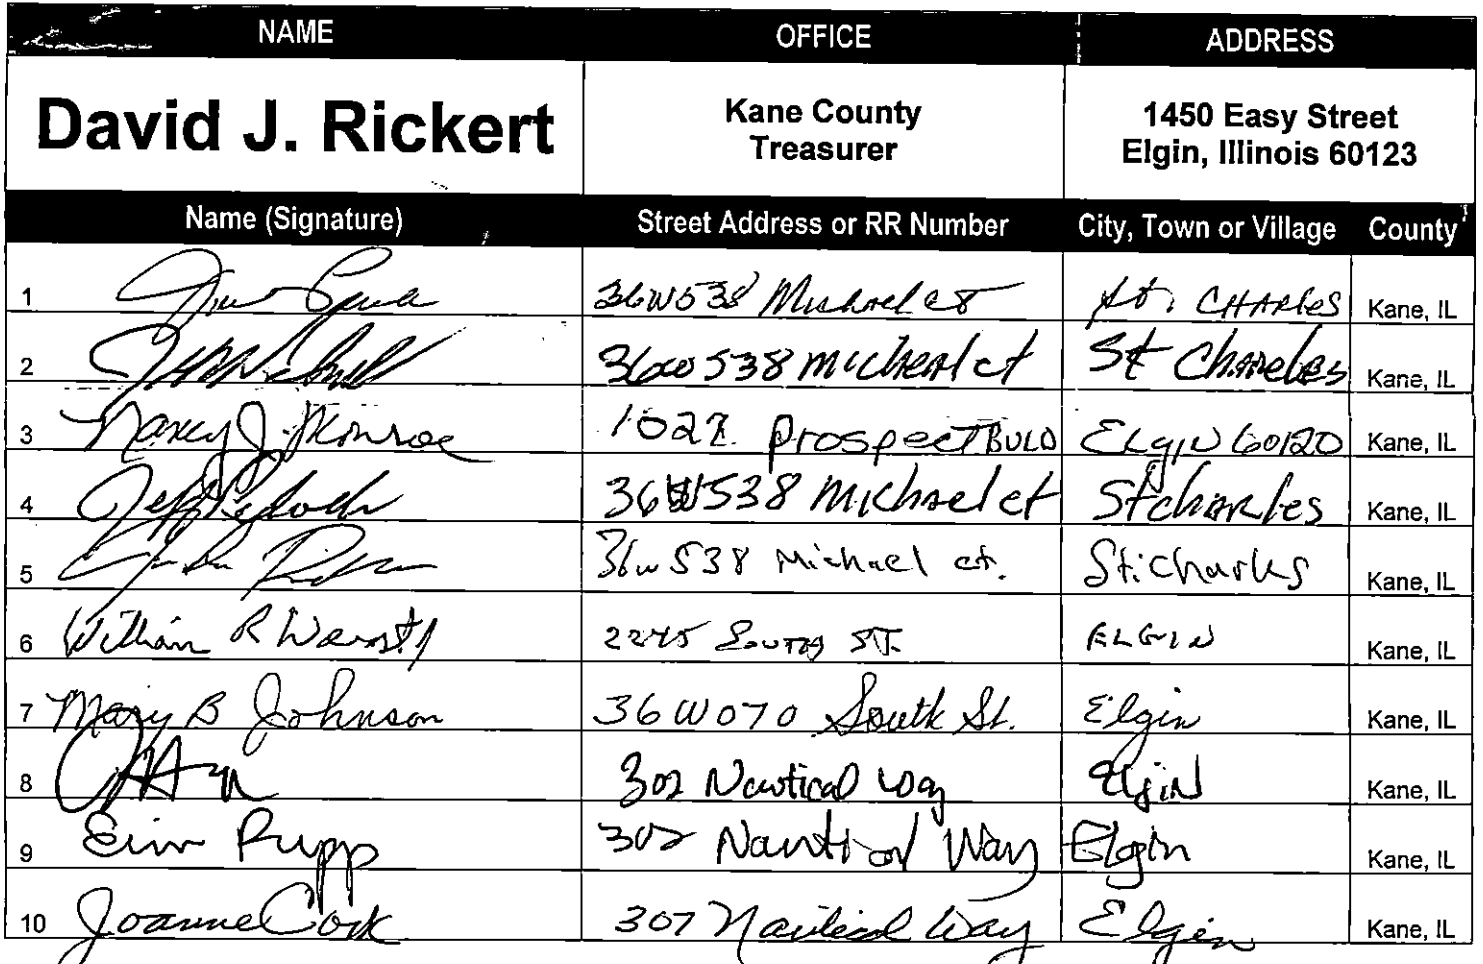 NAME OFFICE ADDRESS
David J. Rickert Kane County Treasurer 1450 Easy Street Elgin, Illinois 60123
Name (Signature) Street Address or RR Number City, Town or Village County
1 36W538 Michael ct St. CHARLES Kane, IL
2 36w538 Michael ct St Charles Kane, IL
3 Nancy J. Monroe 1022 Prospect BLVD Elgin 60120 Kane, IL
4 Jeff 36W538 Michael ct St charles Kane, IL
5 36w538 Michael ct. St. Charles Kane, IL
6 William R 2245 South ST. ELGIN Kane, IL
7 Mary B Johnson 36W070 South St. Elgin Kane, IL
8 302 Nautical Way Elgin Kane, IL
9 Erin Rupp 302 Nautical Way Elgin Kane, IL
10 Joanne Cook 307 Nautical Way Elgin Kane, IL